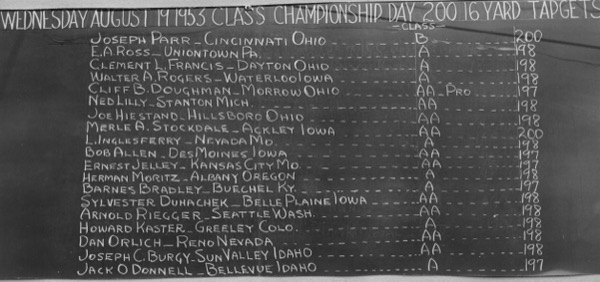 WEDNESDAY AUGUST 19 1953 CLASS CHAMPIONSHIP DAY 200 16 YARD TARGETS
-CLASS-
JOSEPH PARR - CINCINNATI OHIO B 200
E.A ROSS - UNIONTOWN PA. A 198
CLEMENT L. FRANCIS - DAYTON OHIO A 198
WALTER A. ROGERS - WATERLOO IOWA A 198
CLIFF B. DOUGHMAN - MORROW OHIO AA - PRO 197
NED LILLY - STANTON MICH. AA 198
JOE HIESTAND - HILLSBORO OHIO AA 198
MERLE A. STOCKDALE - ACKLEY IOWA AA 200
L. INGLESFERRY - NEVADA MO. A 198
BOB ALLEN - DES MOINES IOWA AA 197
ERNEST JELLEY - KANSAS CITY MO. AA 197
HERMAN MORITZ - ALBANY OREGON A 198
BARNES BRADLEY - BUECHEL KY. A 197
SYLVESTER DUHACHEK - BELLE PLAINE IOWA AA 198
ARNOLD RIEGGER - SEATTLE WASH. AA 198
HOWARD KASTER - GREELEY COLO. A 198
DAN ORLICH - RENO NEVADA AA 198
JOSEPH C. BURGY - SUN VALLEY IDAHO AA 198
JACK O DONNELL - BELLEVUE IDAHO A 197